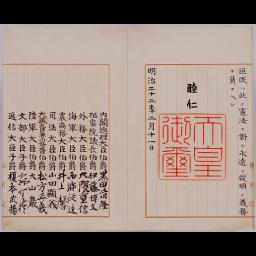 臣民ハ此ノ憲法ニ對シ永遠ニ從順ノ義務
ヲ負フヘシ
睦仁
天皇御璽
明治二十二年二月十一日
内閣總理大臣伯爵黑田清隆
樞密院議長伯爵伊藤博文
外務大臣伯爵大隈重信
海軍大臣伯爵西鄕從道
農商務大臣伯爵井上馨
司法大臣伯爵山田顯義
大藏大臣兼内務大臣伯爵松方正義
陸軍大臣伯爵大山巖
文部大臣子爵森有禮
遞信大臣子爵榎本武揚